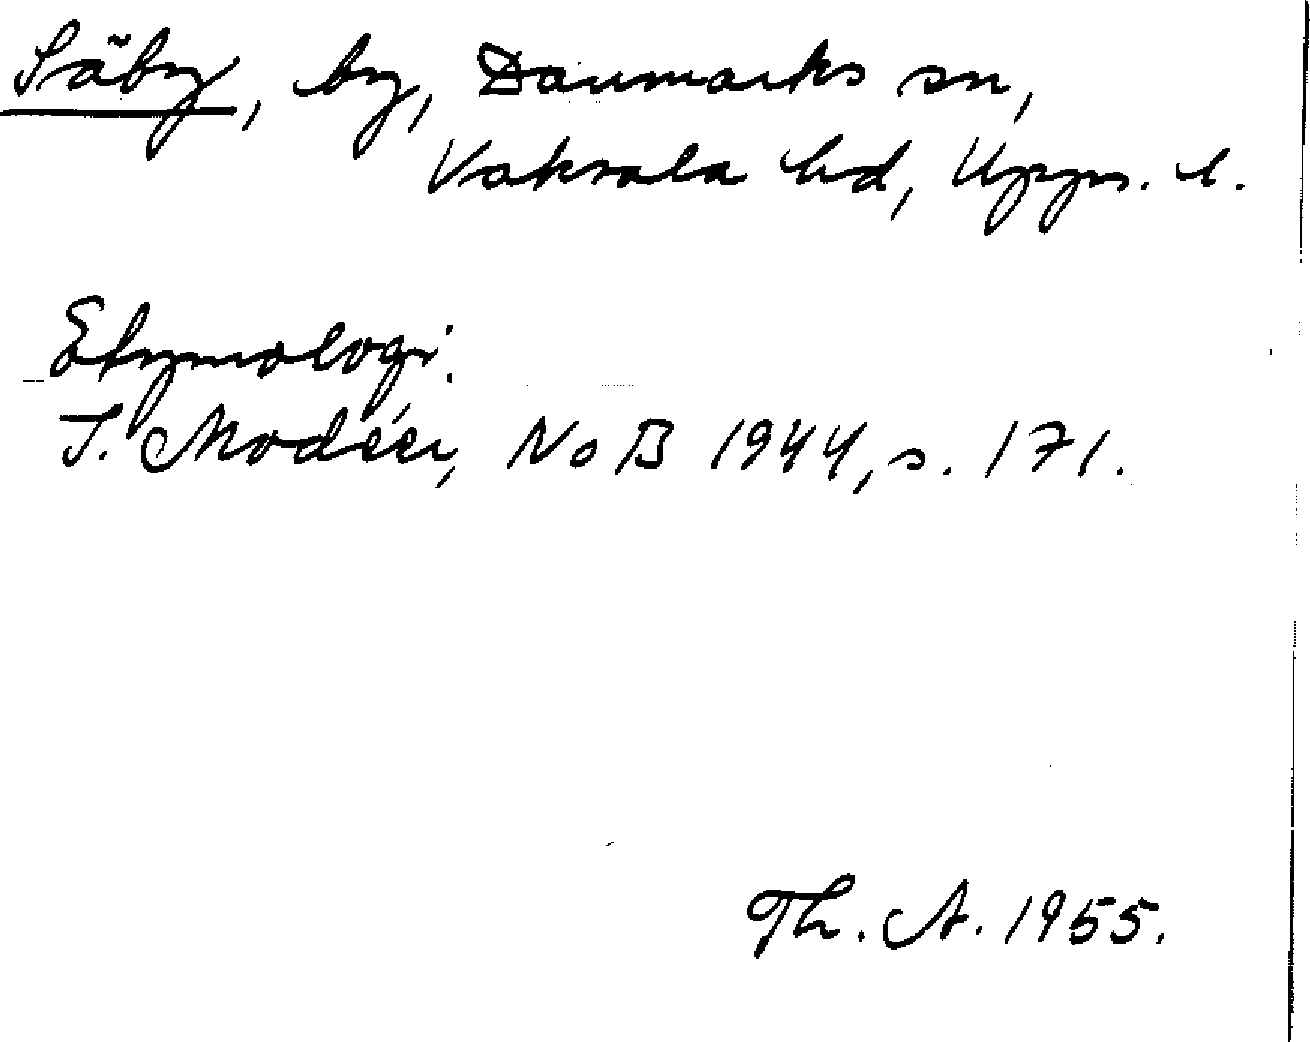 Säby, by, Danmarks sn,
Vaksala hd, Upps. l.
Etymologi:
I. Modéer, NoB 1944, s. 171.
Th. A. 1955.